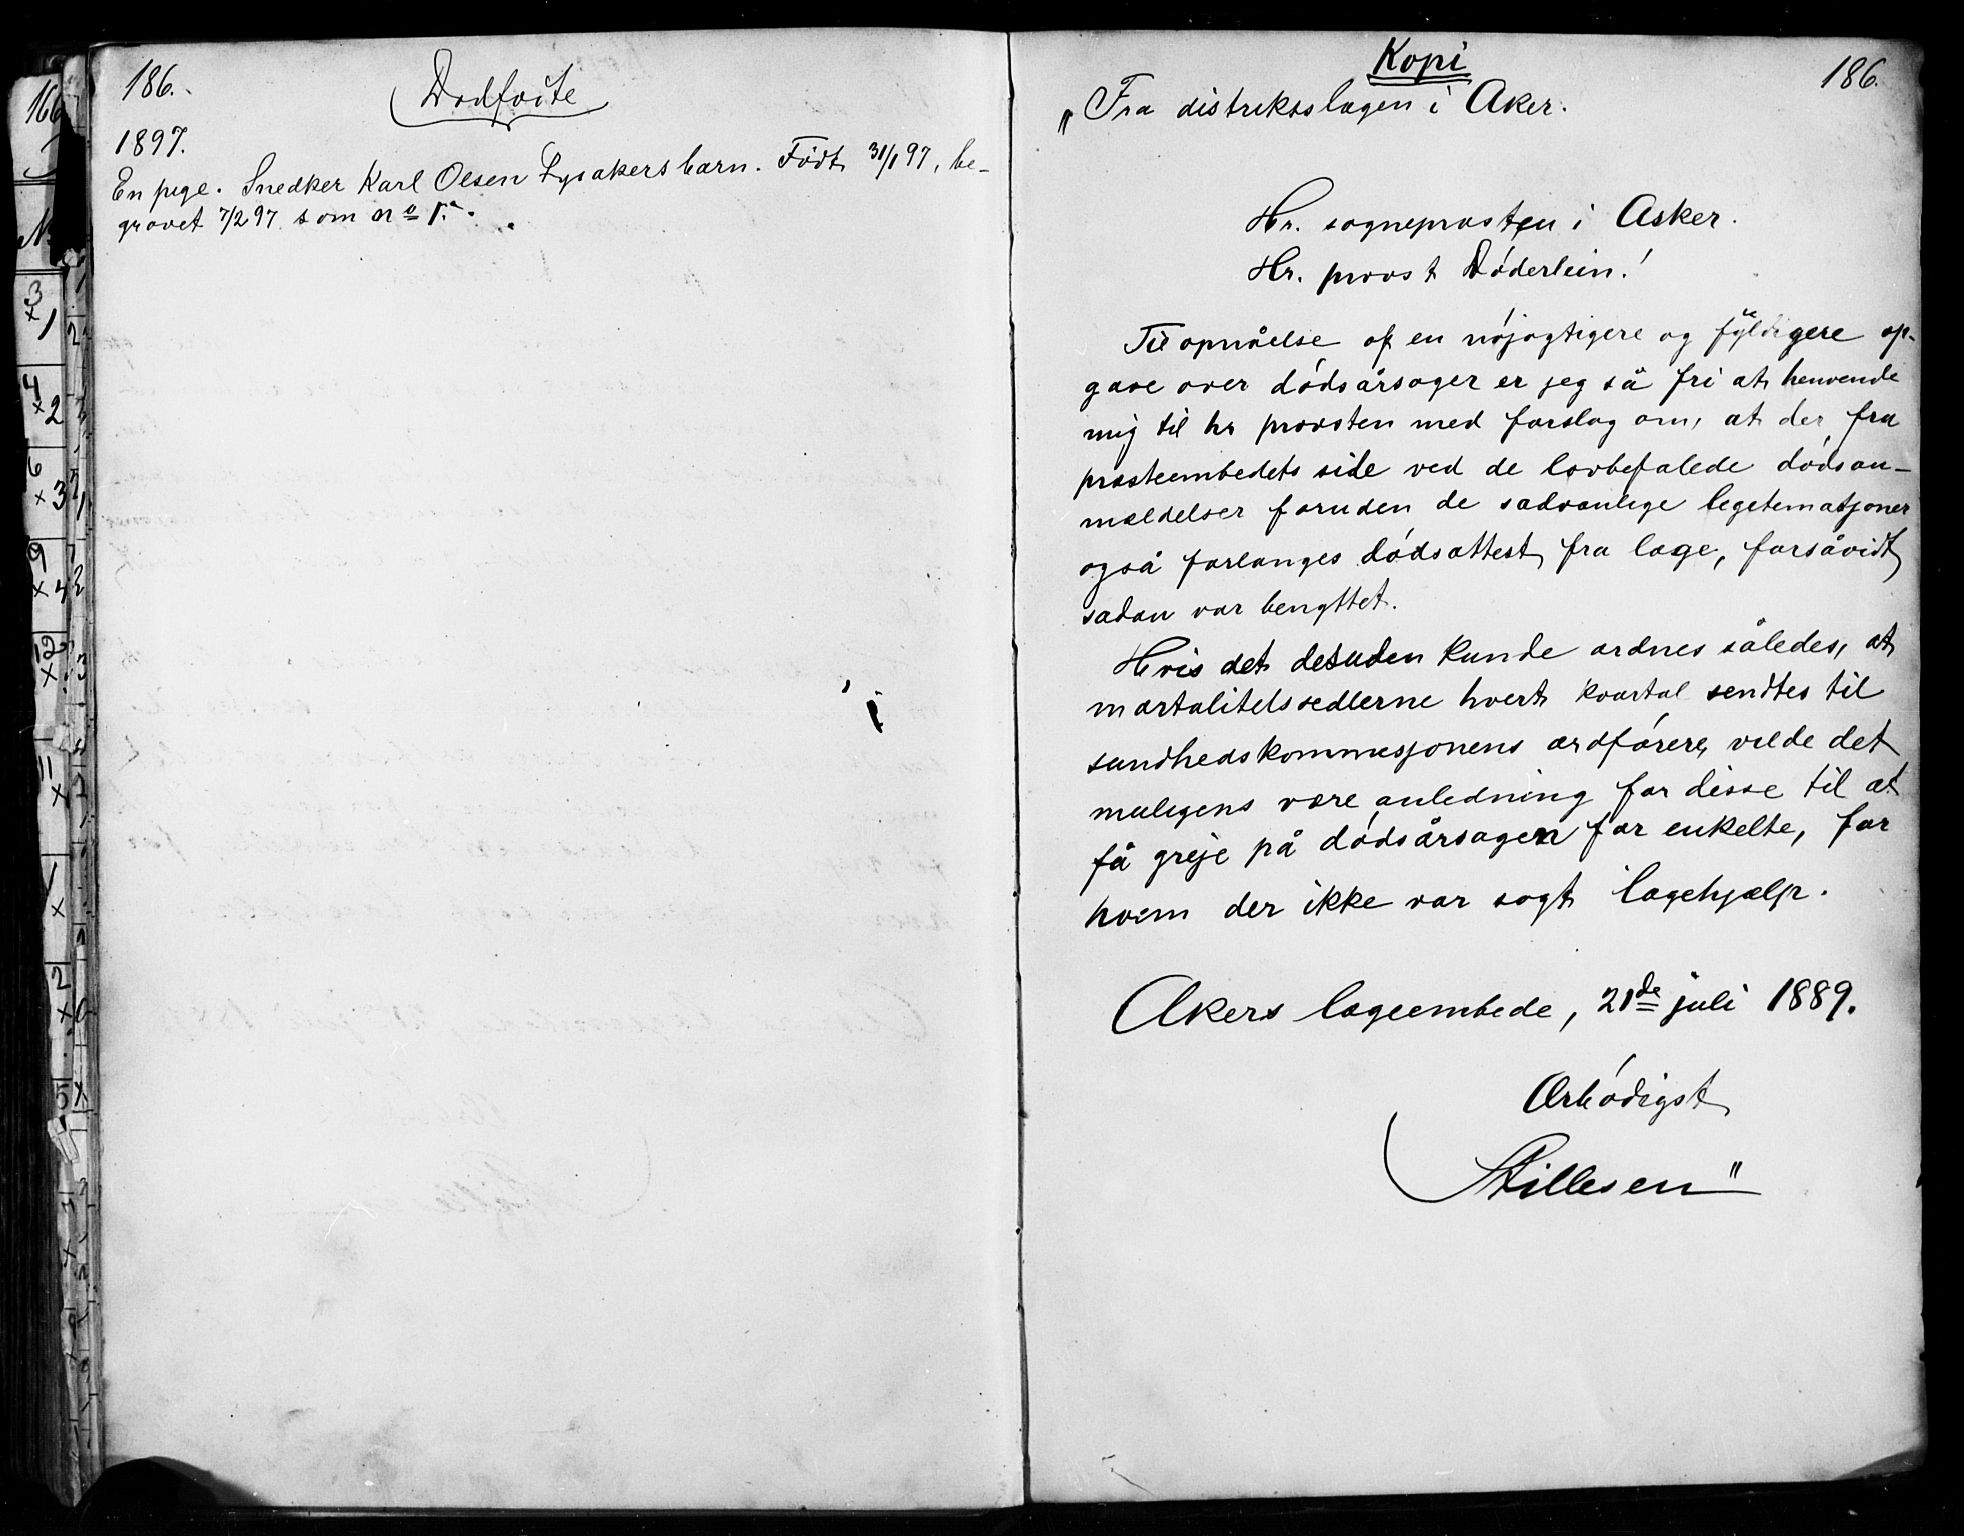 186.
Dødføŧe
1897.
En pige. Snedker Karl Olsen Lysakers barn. Født 31/1 97, be-
gravet 7/2 97 som no 1.
Kopi
186.
"Fra distriktslægen i Aker.
Hr. sogneprosten i Asker.
Hr. provst Döderlein!
Til opnåelse af en nøjagtigere og fyldigere op-
gave over dødsårsager er jeg så fri at henvende
mig til hr provsten med forslag om, at der fra
præsteembedets side ved de lovbefalede dødsan-
mældelser foruden de sædvanlige legitematjoner
også forlanges dødsattest fra læge, forsåvidt
sadan var benyttet.
Hvis det desuden kunde ordnes således, at
mortalitetssedlerne hvert kvartal sendtes til
sundhedskommisjonens ordförere, vilde det
muligens være anledning for disse til at
få greje på dødsårsagen for enkelte, for
hvem der ikke var søgt lægehjælp.
Akers lægeembede, 21de juli 1889.
Ærbödigst
Stillesen"